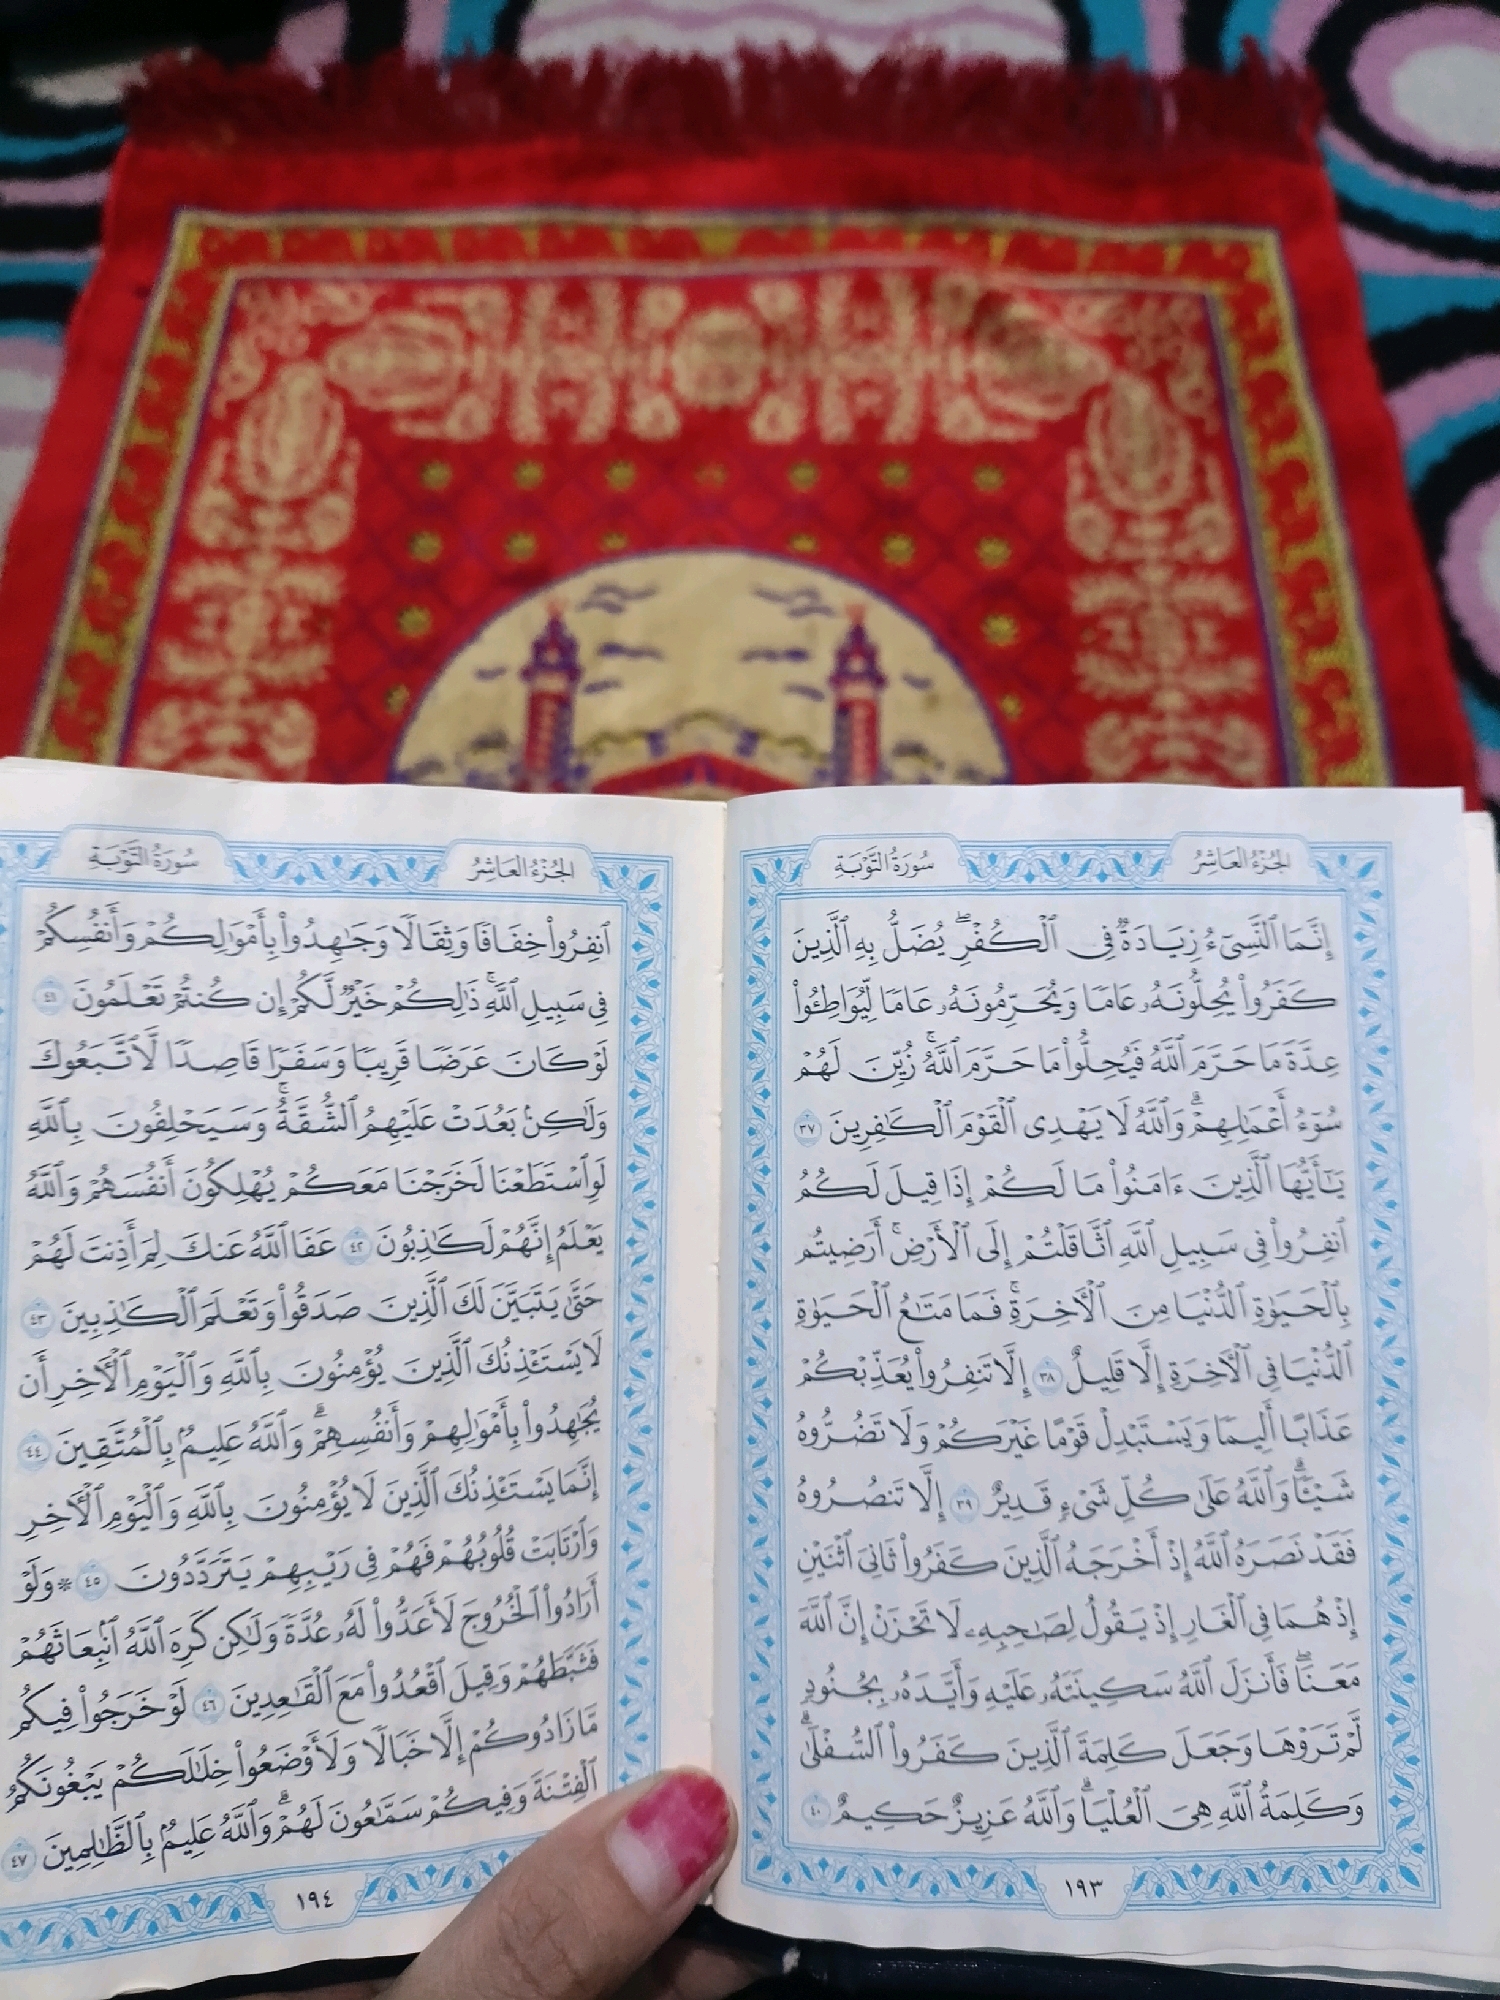 الجزء العاشر
سورة التوبة
إِنَّمَا ٱلنَّسِىٓءُ زِيَادَةٌ فِى ٱلْكُفْرِۖ يُضَلُّ بِهِ ٱلَّذِينَ
كَفَرُوا۟ يُحِلُّونَهُۥ عَامًا وَيُحَرِّمُونَهُۥ عَامًا لِّيُوَاطِـُٔوا۟
عِدَّةَ مَا حَرَّمَ ٱللَّهُ فَيُحِلُّوا۟ مَا حَرَّمَ ٱللَّهُۚ زُيِّنَ لَهُمْ
سُوٓءُ أَعْمَٰلِهِمْۗ وَٱللَّهُ لَا يَهْدِى ٱلْقَوْمَ ٱلْكَٰفِرِينَ ٣٧
يَٰٓأَيُّهَا ٱلَّذِينَ ءَامَنُوا۟ مَا لَكُمْ إِذَا قِيلَ لَكُمُ
ٱنفِرُوا۟ فِى سَبِيلِ ٱللَّهِ ٱثَّاقَلْتُمْ إِلَى ٱلْأَرْضِۚ أَرَضِيتُم
بِٱلْحَيَوٰةِ ٱلدُّنْيَا مِنَ ٱلْءَاخِرَةِۚ فَمَا مَتَٰعُ ٱلْحَيَوٰةِ
ٱلدُّنْيَا فِى ٱلْءَاخِرَةِ إِلَّا قَلِيلٌ ٣٨ إِلَّا تَنفِرُوا۟ يُعَذِّبْكُمْ
عَذَابًا أَلِيمًا وَيَسْتَبْدِلْ قَوْمًا غَيْرَكُمْ وَلَا تَضُرُّوهُ
شَيْـًٔاۗ وَٱللَّهُ عَلَىٰ كُلِّ شَىْءٍ قَدِيرٌ ٣٩ إِلَّا تَنصُرُوهُ
فَقَدْ نَصَرَهُ ٱللَّهُ إِذْ أَخْرَجَهُ ٱلَّذِينَ كَفَرُوا۟ ثَانِىَ ٱثْنَيْنِ
إِذْ هُمَا فِى ٱلْغَارِ إِذْ يَقُولُ لِصَٰحِبِهِۦ لَا تَحْزَنْ إِنَّ ٱللَّهَ
مَعَنَاۖ فَأَنزَلَ ٱللَّهُ سَكِينَتَهُۥ عَلَيْهِ وَأَيَّدَهُۥ بِجُنُودٍ
لَّمْ تَرَوْهَا وَجَعَلَ كَلِمَةَ ٱلَّذِينَ كَفَرُوا۟ ٱلسُّفْلَىٰۗ
وَكَلِمَةُ ٱللَّهِ هِىَ ٱلْعُلْيَاۗ وَٱللَّهُ عَزِيزٌ حَكِيمٌ ٤٠
١٩٣
الجزء العاشر
سورة التوبة
ٱنفِرُوا۟ خِفَافًا وَثِقَالًا وَجَٰهِدُوا۟ بِأَمْوَٰلِكُمْ وَأَنفُسِكُمْ
فِى سَبِيلِ ٱللَّهِۚ ذَٰلِكُمْ خَيْرٌ لَّكُمْ إِن كُنتُمْ تَعْلَمُونَ ٤١
لَوْ كَانَ عَرَضًا قَرِيبًا وَسَفَرًا قَاصِدًا لَّٱتَّبَعُوكَ
وَلَٰكِنۢ بَعُدَتْ عَلَيْهِمُ ٱلشُّقَّةُۚ وَسَيَحْلِفُونَ بِٱللَّهِ
لَوِ ٱسْتَطَعْنَا لَخَرَجْنَا مَعَكُمْ يُهْلِكُونَ أَنفُسَهُمْ وَٱللَّهُ
يَعْلَمُ إِنَّهُمْ لَكَٰذِبُونَ ٤٢ عَفَا ٱللَّهُ عَنكَ لِمَ أَذِنتَ لَهُمْ
حَتَّىٰ يَتَبَيَّنَ لَكَ ٱلَّذِينَ صَدَقُوا۟ وَتَعْلَمَ ٱلْكَٰذِبِينَ ٤٣
لَا يَسْتَـْٔذِنُكَ ٱلَّذِينَ يُؤْمِنُونَ بِٱللَّهِ وَٱلْيَوْمِ ٱلْءَاخِرِ أَن
يُجَٰهِدُوا۟ بِأَمْوَٰلِهِمْ وَأَنفُسِهِمْۗ وَٱللَّهُ عَلِيمٌۢ بِٱلْمُتَّقِينَ ٤٤
إِنَّمَا يَسْتَـْٔذِنُكَ ٱلَّذِينَ لَا يُؤْمِنُونَ بِٱللَّهِ وَٱلْيَوْمِ ٱلْءَاخِرِ
وَٱرْتَابَتْ قُلُوبُهُمْ فَهُمْ فِى رَيْبِهِمْ يَتَرَدَّدُونَ ٤٥ * وَلَوْ
أَرَادُوا۟ ٱلْخُرُوجَ لَأَعَدُّوا۟ لَهُۥ عُدَّةً وَلَٰكِن كَرِهَ ٱللَّهُ ٱنۢبِعَاثَهُمْ
فَثَبَّطَهُمْ وَقِيلَ ٱقْعُدُوا۟ مَعَ ٱلْقَٰعِدِينَ ٤٦ لَوْ خَرَجُوا۟ فِيكُم
مَّا زَادُوكُمْ إِلَّا خَبَالًا وَلَأَوْضَعُوا۟ خِلَٰلَكُمْ يَبْغُونَكُمُ
ٱلْفِتْنَةَ وَفِيكُمْ سَمَّٰعُونَ لَهُمْۗ وَٱللَّهُ عَلِيمٌۢ بِٱلظَّٰلِمِينَ ٤٧
١٩٤